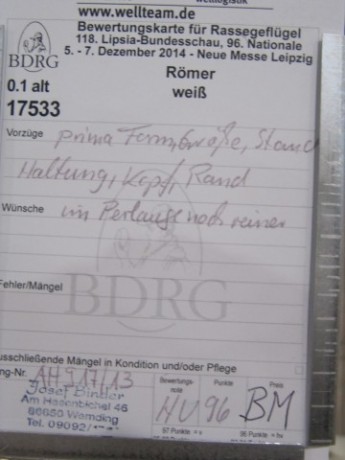 www.wellteam.de
Bewertungskarte für Rassegeflügel
118. Lipsia-Bundesschau, 96. Nationale
5. - 7. Dezember 2014 - Neue Messe Leipzig
BDRG
Römer
0.1 alt
weiß
17533
Vorzüge prima Form, Größe, Stand
Haltung, Kopf, Rand
Wünsche im Perlauge noch reiner
BDRG
Fehler/Mängel
usschließende Mängel in Kondition und/oder Pflege
ng-Nr. AH 917/13
Bewertungs-
note
Punkte
Preis
HV 96 BM
Josef
Am Hasenbichel 46
86650 Wemding
Tel. 09092/
97 Punkte = v
96 Punkte = hv